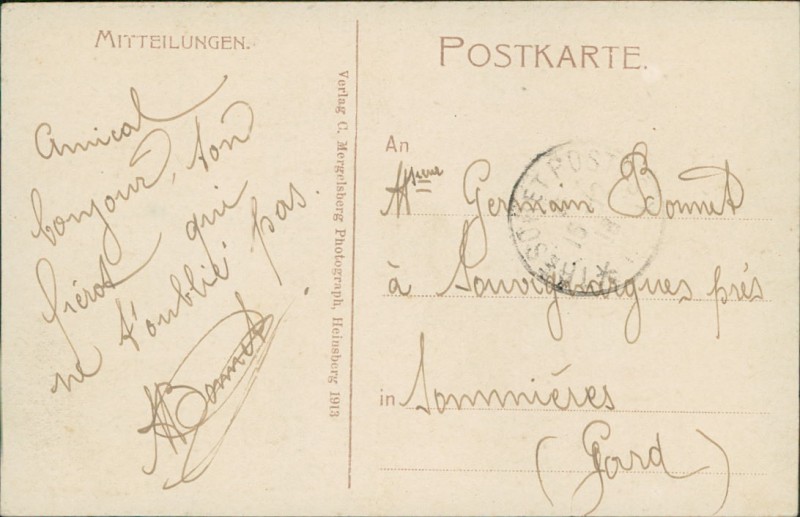 MITTEILUNGEN.
Amical
bonjour, ton
fiérot qui
ne t'oublie pas.
ABonnet
Verlag C. Mergelsberg Photograph, Heinsberg 1913
POSTKARTE.
TRESOR ET POST
An Mme Germain Bonnet
à Souvignargues près
in Sommiéres
(Gard)